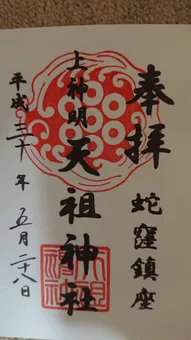 奉拝
蛇窪鎮座
上神明
天祖神社
平成三十年五月二十八日